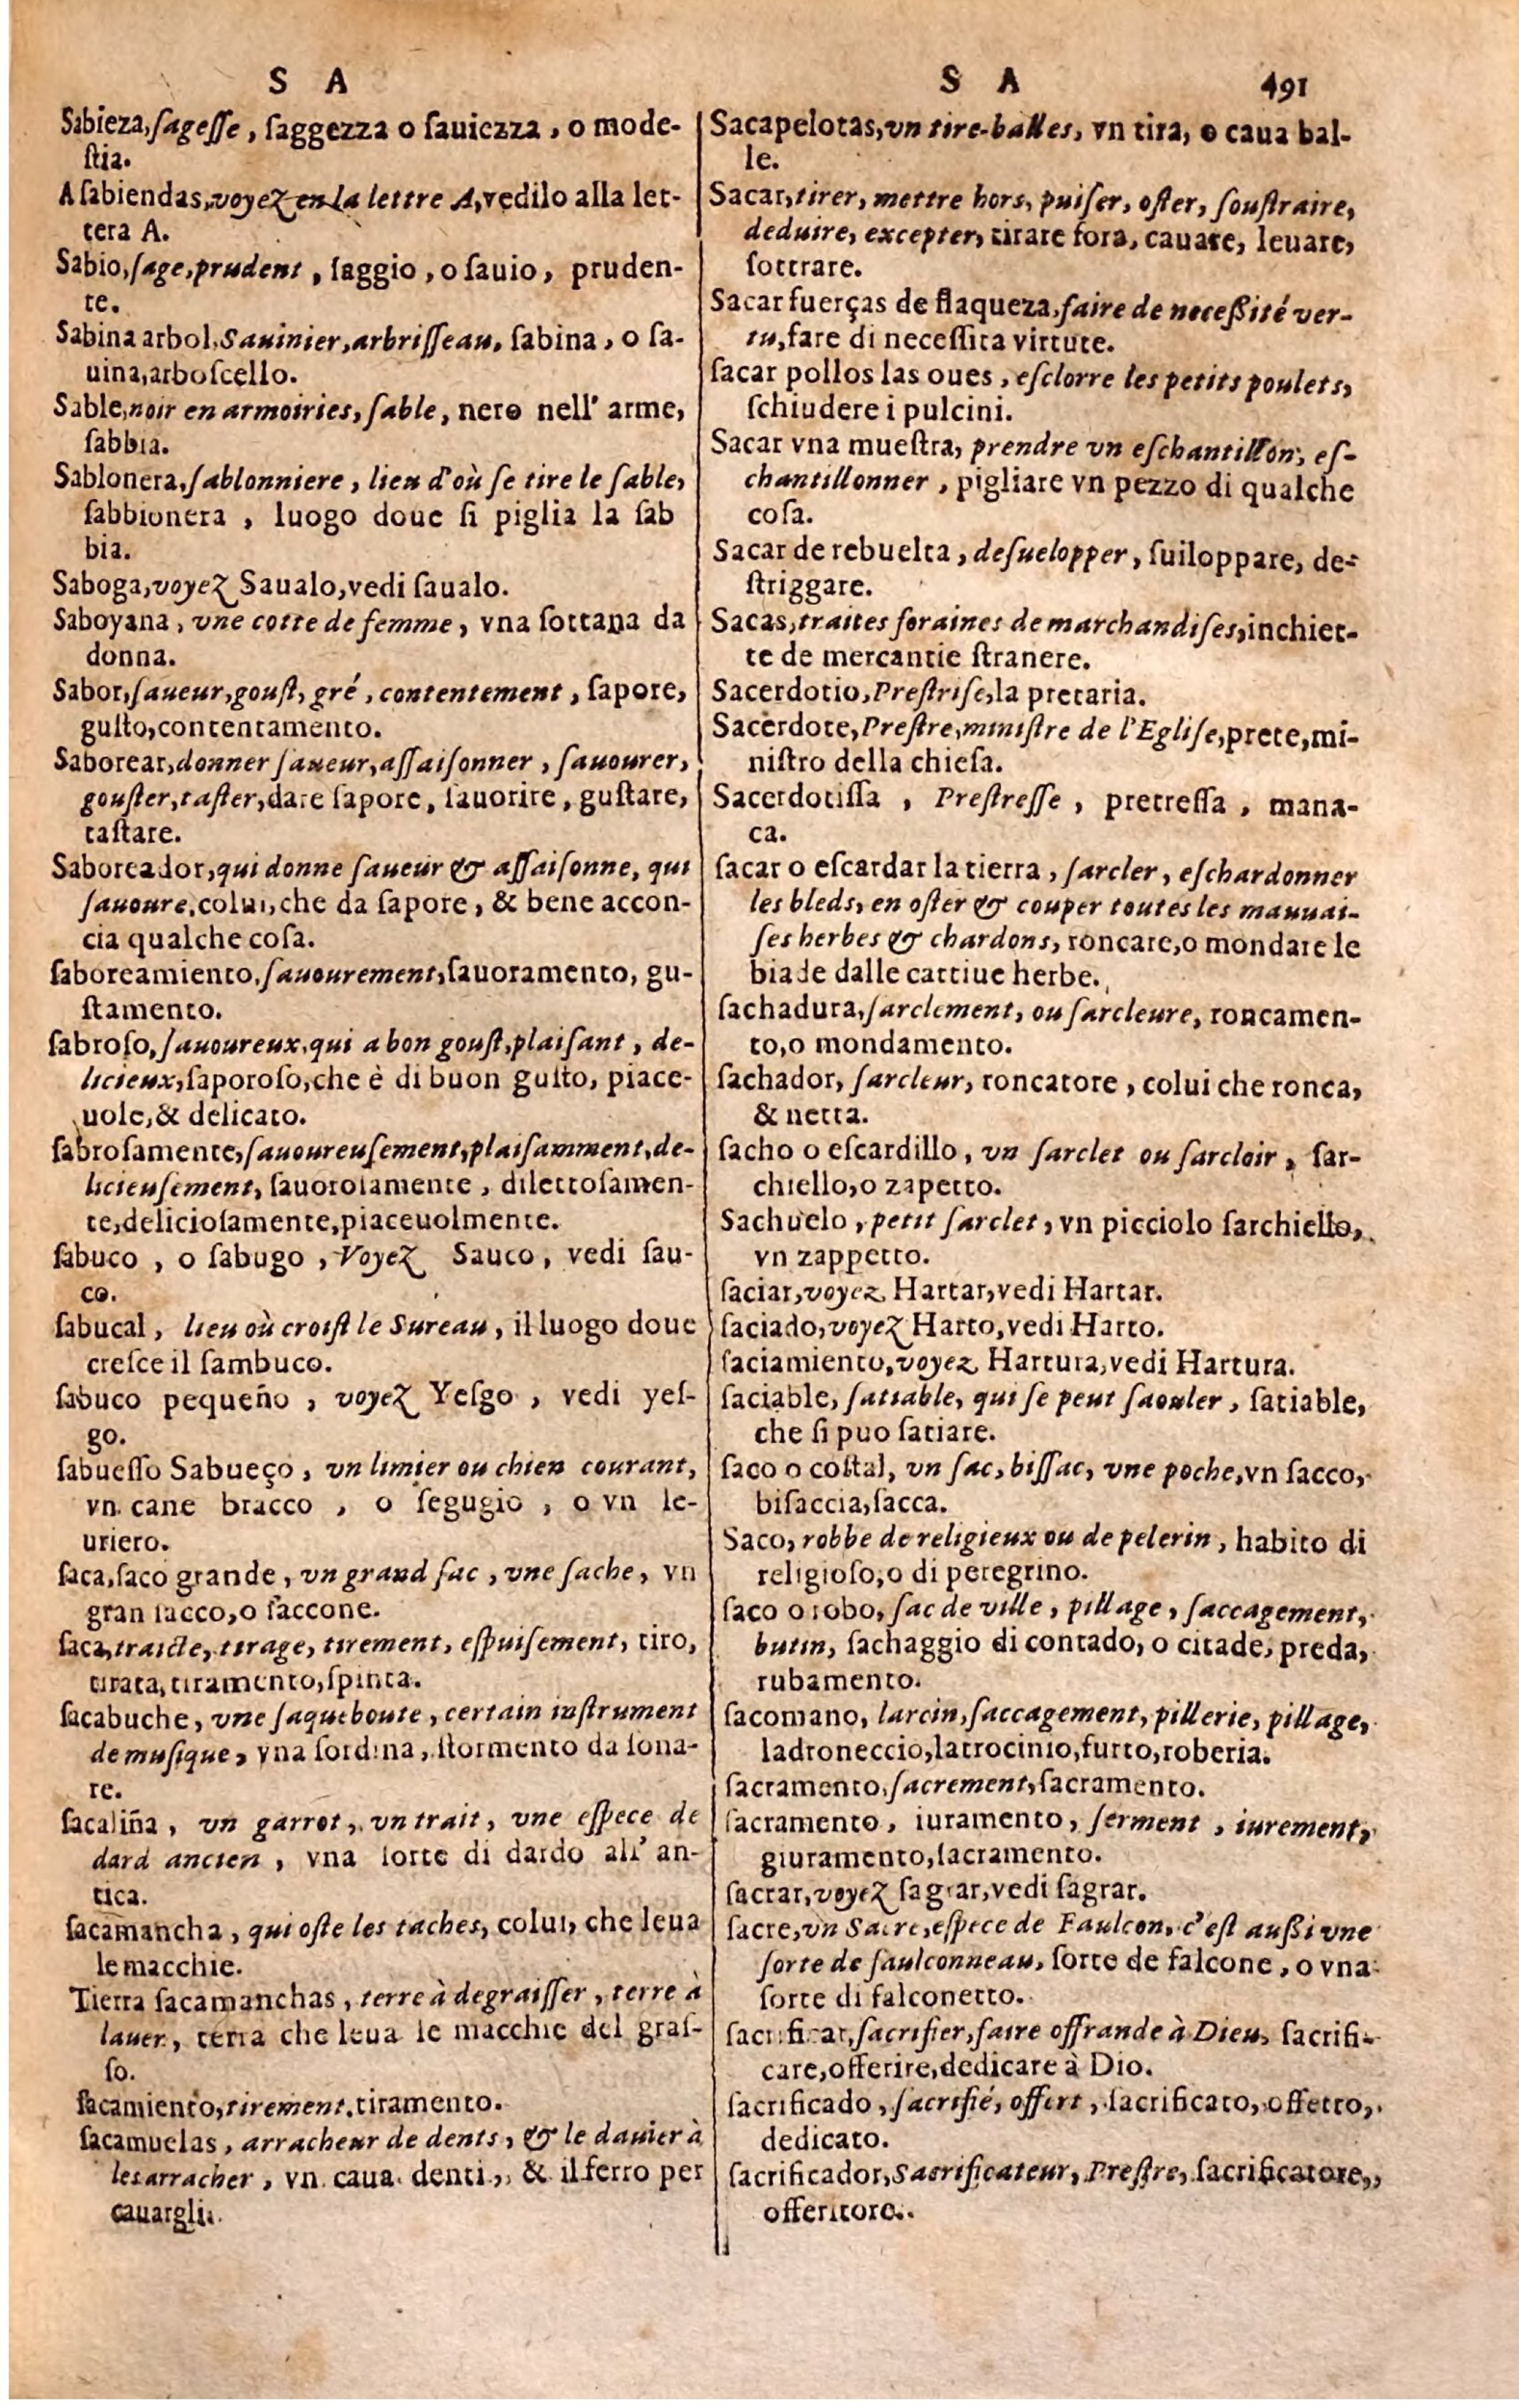 S A
Sabieza, ſageſſe, ſaggezza o ſauiezza, o mode-
ſtia.
A ſabiendas, voyez en la lettre A, vedilo alla let-
tera A.
Sabio, ſage, prudent, ſaggio, o ſauio, pruden-
te.
Sabina arbol, Sauinier, arbriſſeau, ſabina, o ſa-
uina, arboſcello.
Sable, noir en armoiries, ſable, nero nell' arme,
ſabbia.
Sablonera, ſablonniere, lieu d'où ſe tire le ſable,
ſabbionera, luogo doue ſi piglia la ſab
bia.
Saboga, voyez Saualo, vedi ſaualo.
Saboyana, vne cotte de femme, vna ſottana da
donna.
Sabor, ſaueur, gouſt, gré, contentement, ſapore,
guſto, contentamento.
Saborear, donner ſaueur, aſſaiſonner, ſauourer,
gouſter, taſter, dare ſapore, ſauorire, guſtare,
taſtare.
Saboreador, qui donne ſaueur & aſſaiſonne, qui
ſauoure, colui, che da ſapore, & bene accon-
cia qualche coſa.
ſaboreamiento, ſauourement, ſauoramento, gu-
ſtamento.
ſabroſo, ſauoureux, qui a bon gouſt, plaiſant, de-
licieux, ſaporoſo, che è di buon guſto, piace-
uole, & delicato.
ſabroſamente, ſauoureuſement, plaiſamment, de-
licieuſement, ſauoroſamente, dilettoſamen-
te, delicioſamente, piaceuolmente.
ſabuco, o ſabugo, Voyez Sauco, vedi ſau-
co.
ſabucal, lieu où croiſt le Sureau, il luogo doue
creſce il ſambuco.
ſabuco pequeño, voyez Yeſgo, vedi yeſ-
go.
ſabueſſo Sabueço, vn limier ou chien courant,
vn cane bracco, o ſegugio, o vn le-
uriero.
ſaca, ſaco grande, vn grand ſac, vne ſache, vn
gran ſacco, o ſaccone.
ſaca, traicte, tirage, tirement, eſpuiſement, tiro,
tirata, tiramento, ſpinta.
ſacabuche, vne ſaqueboute, certain inſtrument
de muſique, vna ſordina, ſtormento da ſona-
re.
ſacaliña, vn garrot, vn trait, vne eſpece de
dard ancien, vna ſorte di dardo all' an-
tica.
ſacamancha, qui oſte les taches, colui, che leua
le macchie.
Tierra ſacamanchas, terre à degraiſſer, terre à
lauer, terra che leua le macchie del graſ-
ſo.
ſacamiento, tirement, tiramento.
ſacamuelas, arracheur de dents, & le dauier à
les arracher, vn caua denti, & il ferro per
cauargli.
S A 491
Sacapelotas, vn tire-balles, vn tira, o caua bal-
le.
Sacar, tirer, mettre hors, puiſer, oſter, ſouſtraire,
deduire, excepter, tirare fora, cauare, leuare,
ſottrare.
Sacar fuerças de flaqueza, faire de neceßité ver-
tu, fare di neceſſita virtute.
ſacar pollos las oues, eſclorre les petits poulets,
ſchiudere i pulcini.
Sacar vna mueſtra, prendre vn eſchantillon, eſ-
chantillonner, pigliare vn pezzo di qualche
coſa.
Sacar de rebuelta, deſuelopper, ſuiloppare, de-
ſtriggare.
Sacas, traites foraines de marchandiſes, inchiet-
te de mercantie ſtranere.
Sacerdotio, Preſtriſe, la pretaria.
Sacerdote, Preſtre, miniſtre de l'Egliſe, prete, mi-
niſtro della chieſa.
Sacerdotiſſa, Preſtreſſe, pretreſſa, mana-
ca.
ſacar o eſcardar la tierra, ſarcler, eſchardonner
les bleds, en oſter & couper toutes les mauuai-
ſes herbes & chardons, roncare, o mondare le
biade dalle cattiue herbe.
ſachadura, ſarclement, ou ſarcleure, roncamen-
to, o mondamento.
ſachador, ſarcleur, roncatore, colui che ronca,
& netta.
ſacho o eſcardillo, vn ſarclet ou ſarcloir, ſar-
chiello, o zapetto.
Sachuelo, petit ſarclet, vn picciolo ſarchiello,
vn zappetto.
ſaciar, voyez Hartar, vedi Hartar.
ſaciado, voyez Harto, vedi Harto.
ſaciamiento, voyez Hartura, vedi Hartura.
ſaciable, ſatiable, qui ſe peut ſaouler, ſatiable,
che ſi puo ſatiare.
ſaco o coſtal, vn ſac, biſſac, vne poche, vn ſacco,
biſaccia, ſacca.
Saco, robbe de religieux ou de pelerin, habito di
religioſo, o di peregrino.
ſaco o robo, ſac de ville, pillage, ſaccagement,
butin, ſachaggio di contado, o citade, preda,
rubamento.
ſacomano, larcin, ſaccagement, pillerie, pillage,
ladroneccio, latrocinio, furto, roberia.
ſacramento, ſacrement, ſacramento.
ſacramento, iuramento, ſerment, iurement,
giuramento, ſacramento.
ſacrar, voyez ſagrar, vedi ſagrar.
ſacre, vn Sacre, eſpece de Faulcon, c'eſt außi vne
ſorte de faulconneau, ſorte de falcone, o vna
ſorte di falconetto.
ſacrificar, ſacrifier, faire offrande à Dieu, ſacrifi-
care, offerire, dedicare à Dio.
ſacrificado, ſacrifié, offert, ſacrificato, offetto,
dedicato.
ſacrificador, Sacrificateur, Preſtre, ſacrificatore,
offeritore.